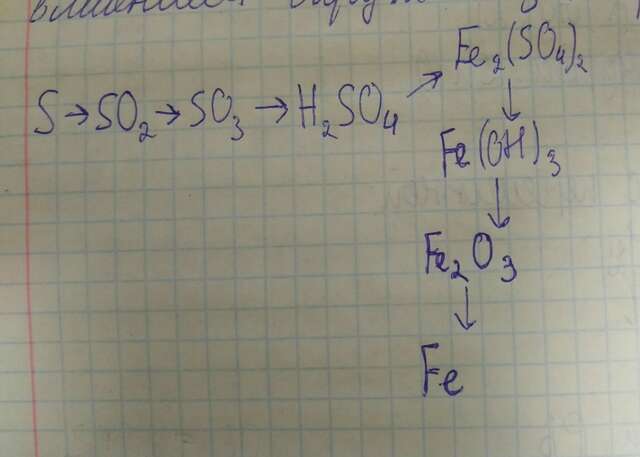 S → SO₂ → SO₃ → H₂SO₄ ↗ Fe₂(SO₄)₂
↓
Fe(OH)₃
↓
Fe₂O₃
↓
Fe